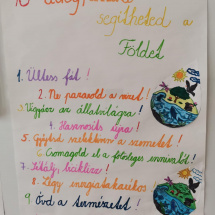 segítheted a
Földet
1. Ültess fát!
2. Ne pazarold a vizet!
3. Vigyázz az állatvilágra!
4. Hasznosíts újra!
5. Gyűjtsd szelektíven a szemetet!
6. Csomagold el a fölösleges
7. Tekálj biciklire!
8. Légy energiatakarékos
9. Óvd a természetet!